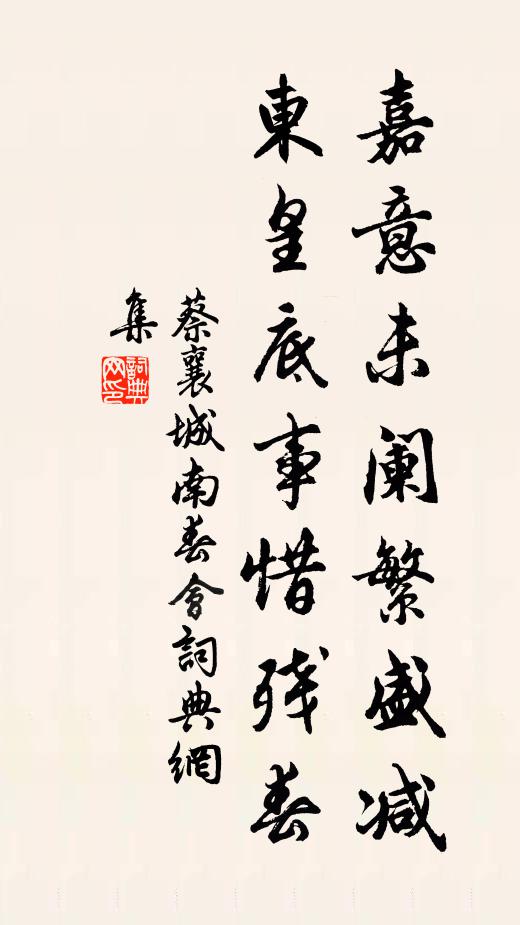 嘉意未阑繁盛减
東皇底事惜残春
蔡襄城南春會詞典網
集
詞典
网印